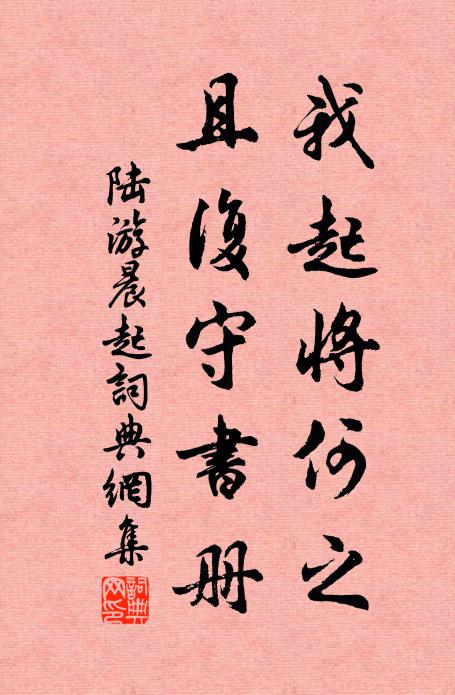 我起將何之
且復守書册
陆游晨起詞典網集
詞典網印